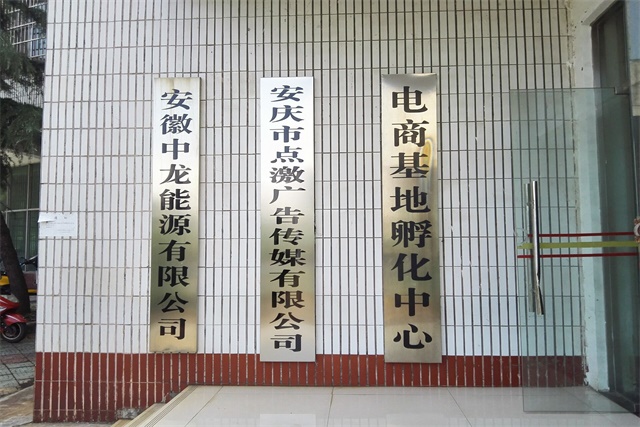 安徽中龙能源有限公司
安庆市点激广告传媒有限公司
电商基地孵化中心